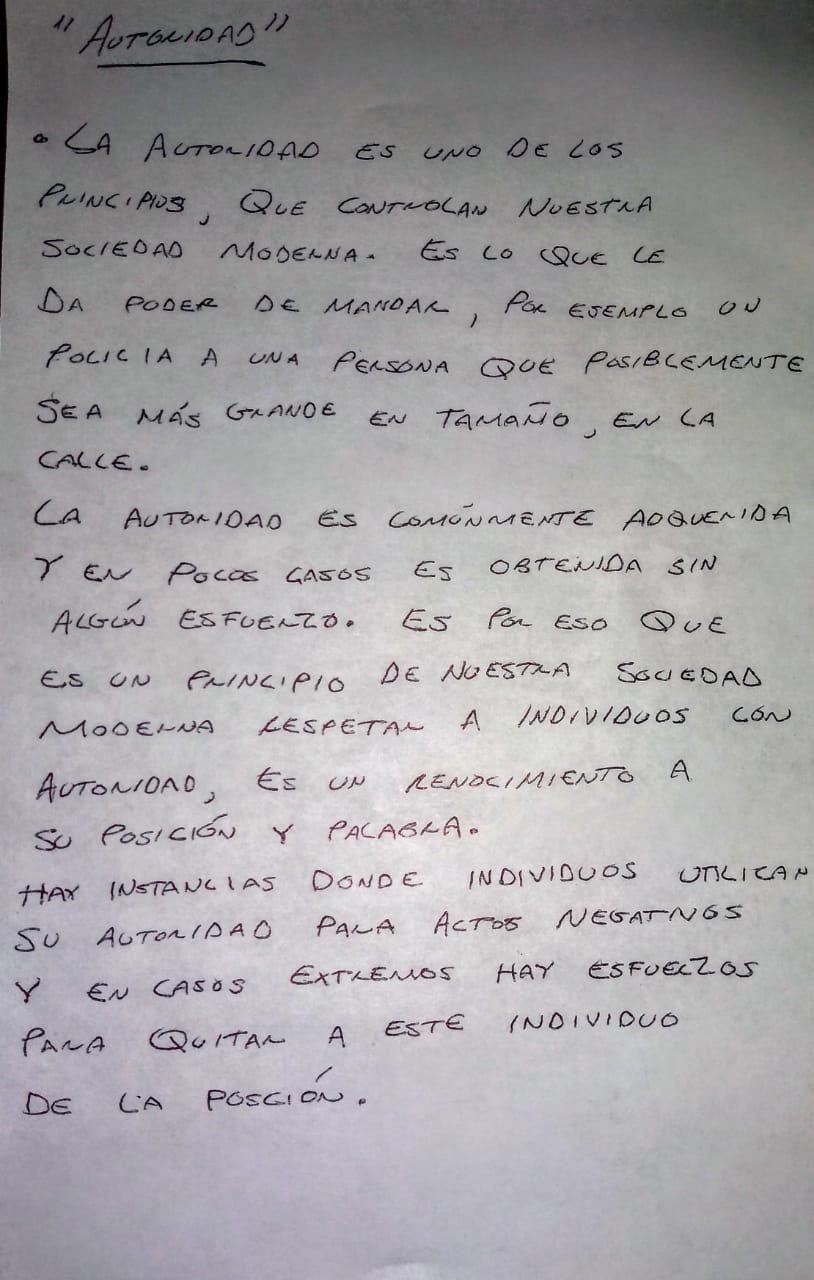 "AUTORIDAD"
• LA AUTORIDAD ES UNO DE LOS
PRINCIPIOS, QUE CONTROLAN NUESTRA
SOCIEDAD MODERNA. ES LO QUE LE
DA PODER DE MANDAR, POR EJEMPLO UN
POLICIA A UNA PERSONA QUE POSIBLEMENTE
SEA MÁS GRANDE EN TAMAÑO, EN LA
CALLE.
LA AUTORIDAD ES COMÚNMENTE ADQUERIDA
Y EN POCOS CASOS ES OBTENIDA SIN
ALGÚN ESFUERZO. ES POR ESO QUE
ES UN PRINCIPIO DE NUESTRA SOCIEDAD
MODERNA RESPETAR A INDIVIDUOS CON
AUTORIDAD, ES UN RENOCIMIENTO A
SU POSICIÓN Y PALABRA.
HAY INSTANCIAS DONDE INDIVIDUOS UTILICAN
SU AUTORIDAD PARA ACTOS NEGATIVOS
Y EN CASOS EXTREMOS HAY ESFUERZOS
PARA QUITAR A ESTE INDIVIDUO
DE LA POSCIÓN.